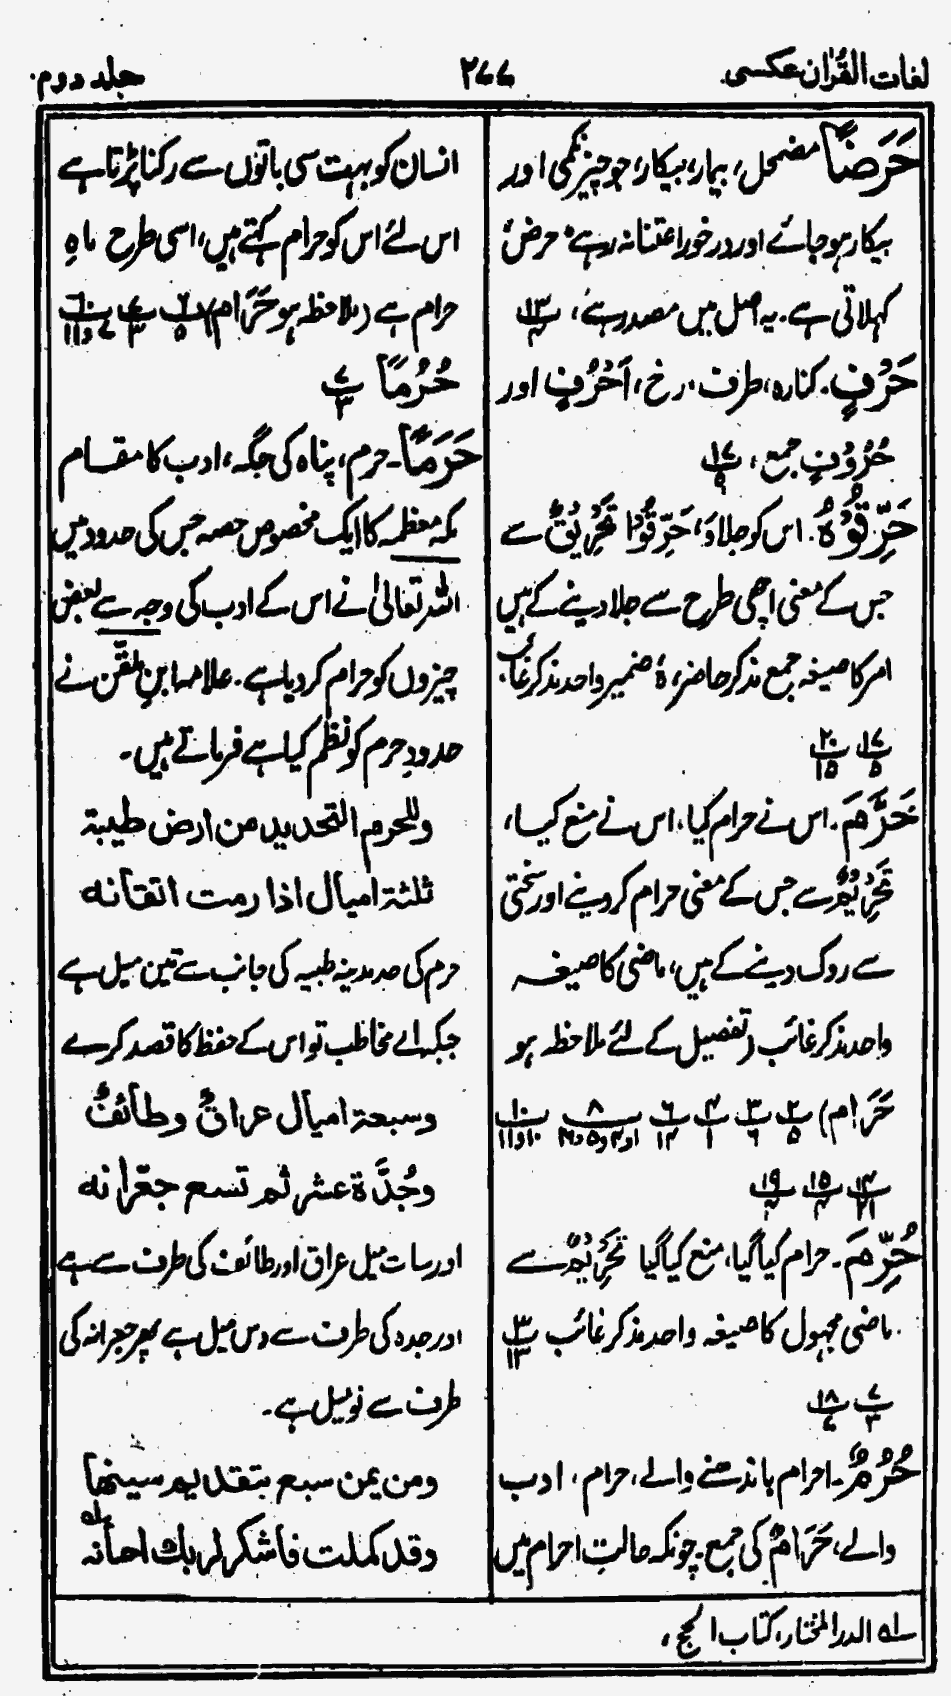 لغات القرآن عکسی
۲۷۷
جلد دوم
حَرَضًا مضمحل، بیمار، بیکار، جو چیز نکمی اور
بیکار ہو جائے اور درخور اعتنا نہ رہے حرض
کہلاتی ہے۔ یہ اصل میں مصدر ہے، پ۱۳ ۴
حَرْفٍ۔ کنارہ، طرف، رخ، اَحْرُفٍ اور
حُرُوْنٍ جمع، پ۱۷ ۹
حَرِّقُوْهُ۔ اس کو جلاؤ، حَرِّقُوْا تَحْرِیْقٌ سے
جس کے معنی اچھی طرح سے جلا دینے کے ہیں
امر کا صیغہ جمع مذکر حاضر، ہُ ضمیر واحد مذکر غائب،
پ۱۷ ۵ پ۲۰ ۱۵
حَرَّمَ۔ اس نے حرام کیا، اس نے منع کیا،
تَحْرِیْمٌ سے جس کے معنی حرام کر دینے اور سختی
سے روک دینے کے ہیں، ماضی کا صیغہ
واحد مذکر غائب (تفصیل کے لئے ملاحظہ ہو
حَرَام) پ۲ ۵ پ۳ ۶ پ۴ ۱ پ۶ ۱۴ پ۸ پ۱۰ ۱۰و۱۱
پ۱۴ ۲۱ پ۱۵ ۴ پ۱۹ ۴
حُرِّمَ۔ حرام کیا گیا، منع کیا گیا تَحْرِیْمٌ سے
ماضی مجہول کا صیغہ واحد مذکر غائب پ۳ ۱۳
پ۷ ۳ پ۱۸ ۷
حُرُمٌ۔ احرام باندھنے والے، حرام، ادب
والے، حَرَامٌ کی جمع۔ چونکہ حالتِ احرام میں
انسان کو بہت سی باتوں سے رکنا پڑتا ہے
اس لئے اس کو حرام کہتے ہیں، اسی طرح ماہِ
حرام ہے (ملاحظہ ہو حَرَام) پ۶ ۵ پ۷ ۳ پ۱۰ ۷و۱۱
حُرُمًا پ۷ ۳
حَرَمًا۔ حرم، پناہ کی جگہ، ادب کا مقام
مکہ معظمہ کا ایک مخصوص حصہ جس کی حدود میں
اللہ تعالیٰ نے اس کے ادب کی وجہ سے بعض
چیزوں کو حرام کر دیا ہے۔ علامہ ابن ملقّن نے
حدودِ حرم کو نظم کیا ہے فرماتے ہیں۔
وللحرم التحدید من ارض طیبة
ثلثة امیال اذا رمت اتقانه
حرم کی حد مدینہ طیبہ کی جانب سے تین میل ہے
جبکہ اے مخاطب تو اس کے حفظ کا قصد کرے
وسبعة امیال عراقٌ وطائفٌ
وجُدَّة عشر ثم تسع جعرانه
اور سات میل عراق اور طائف کی طرف سے ہے
اور جدہ کی طرف سے دس میل ہے پھر جعرانہ کی
طرف سے نو میل ہے۔
ومن یمن سبع بتقدیم سینها
وقد کملت فاشکر لربك احسانه ؎۱
؎۱ الدر المختار، کتاب الحج،